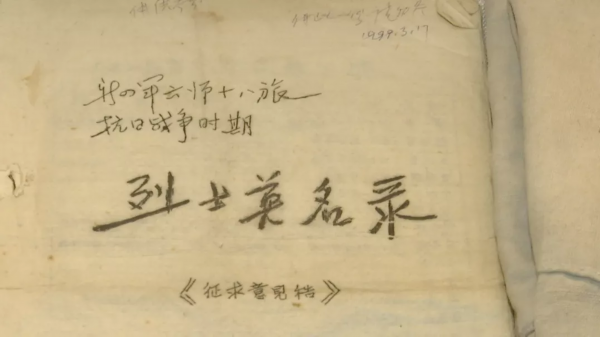 1999.3.17
新四军六师十八旅
抗日战争时期
烈士英名录
《征求意见稿》